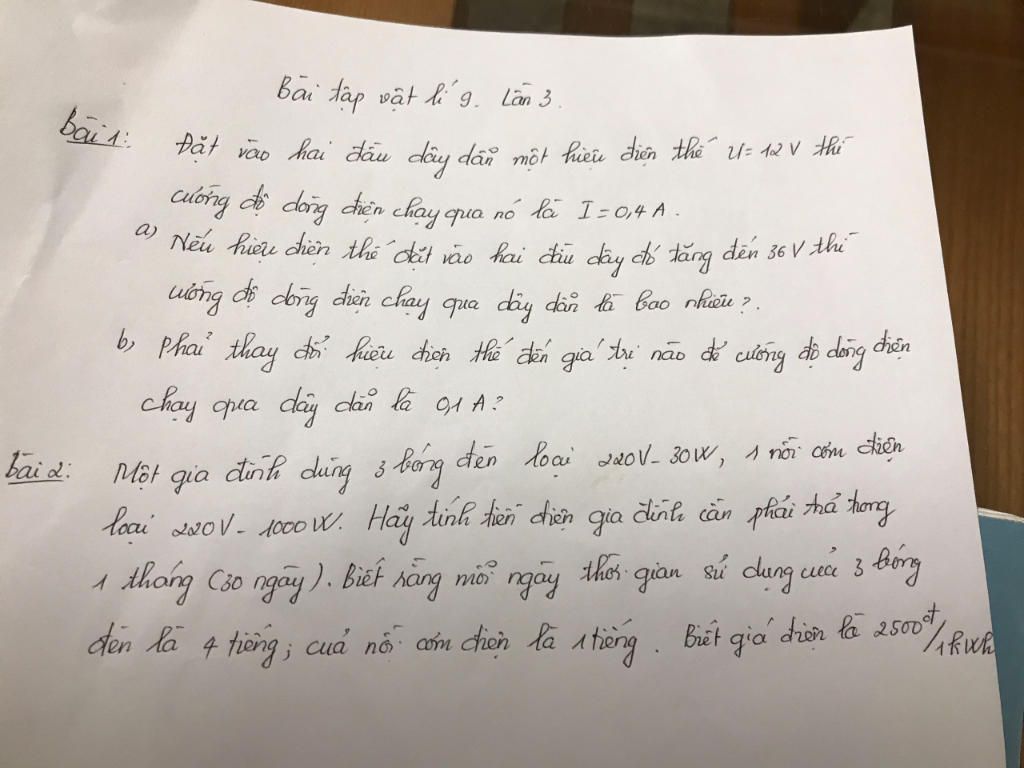 Bài tập vật lí 9. Lần 3.
Bài 1: Đặt vào hai đầu dây dẫn một hiệu điện thế U = 12 V thì
cường độ dòng điện chạy qua nó là I = 0,4 A.
a) Nếu hiệu điện thế đặt vào hai đầu dây đó tăng đến 36 V thì
cường độ dòng điện chạy qua dây dẫn là bao nhiêu?.
b) Phải thay đổi hiệu điện thế đến giá trị nào để cường độ dòng điện
chạy qua dây dẫn là 0,1 A?
Bài 2: Một gia đình dùng 3 bóng đèn loại 220V - 30W, 1 nồi cơm điện
loại 220V - 1000W. Hãy tính tiền điện gia đình cần phải trả trong
1 tháng (30 ngày). Biết rằng mỗi ngày thời gian sử dụng của 3 bóng
đèn là 4 tiếng; của nồi cơm điện là 1 tiếng. Biết giá điện là 2500đ/1kWh